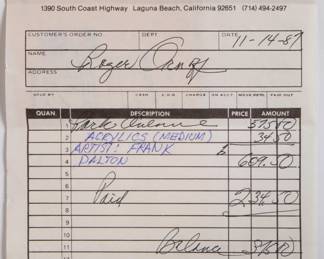 1390 South Coast Highway Laguna Beach, California 92651 (714) 494-2497
CUSTOMER'S ORDER NO. DEPT. DATE 11-14-89
NAME Roger
ADDRESS
SOLD BY CASH C.O.D. CHARGE ON ACCT. MDSE. RETD. PAID OUT
QUAN. DESCRIPTION PRICE AMOUNT
1
2 ACRYLICS (MEDIUM) 34 50
3 ARTIST: FRANK
4 DALTON 609.50
5
6
7 Paid 234.50
8
9
10
11 Balance 375 00